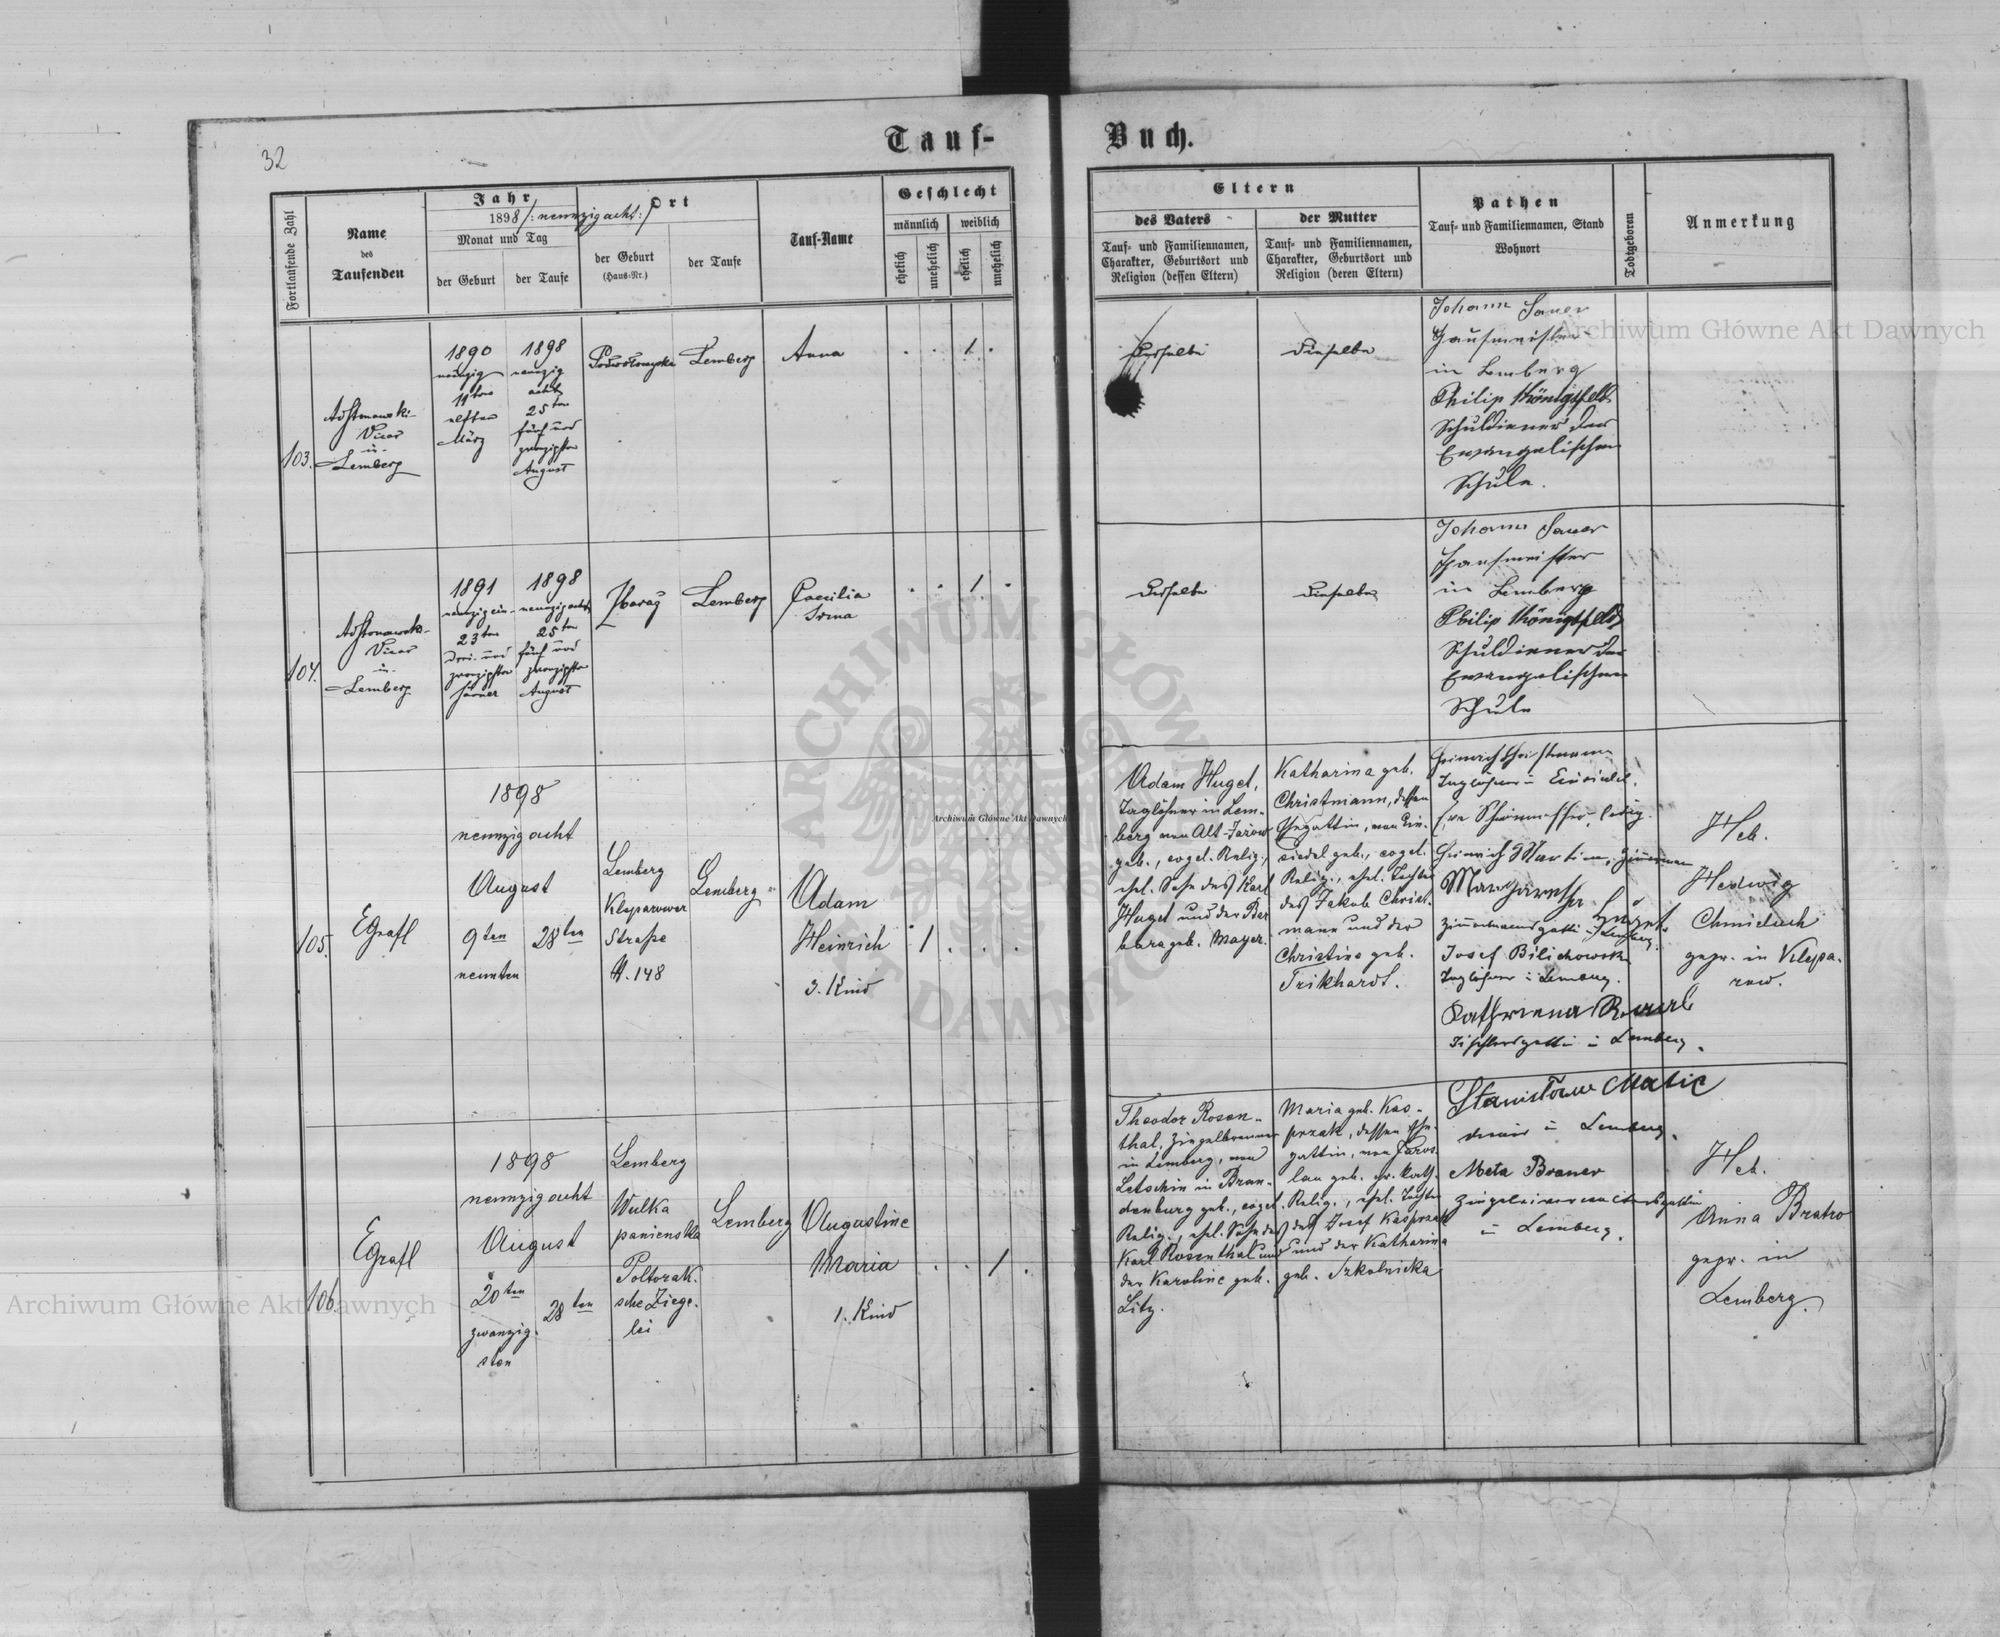 32
Tauf-
Buch.
Fortlaufende Zahl
Name
des
Taufenden
Jahr
1898 /: neunzigacht :/
Monat und Tag
der Geburt
der Taufe
Ort
der Geburt
(Haus-Nr.)
der Taufe
Tauf-Name
Geschlecht
männlich
weiblich
ehelich
unehelich
ehelich
unehelich
Eltern
des Vaters
Tauf- und Familiennamen,
Charakter, Geburtsort und
Religion (dessen Eltern)
der Mutter
Tauf- und Familiennamen,
Charakter, Geburtsort und
Religion (deren Eltern)
Pathen
Tauf- und Familiennamen, Stand
Wohnort
Todtgeboren
Anmerkung
103.
Vicar
in
Lemberg
1890
neunzig
11ten
elften
März
1898
neunzig
acht
25ten
fünf und
zwanzigsten
August
Podwołoczyska
Lemberg
Anna
1
Derselbe
Dieselbe
Johann Sauer
Hausmeister
in Lemberg
Philip Königsfeld
Schuldiener der
Evangelischen
Schule.
104.
Vicar
in
Lemberg
1891
neunzigein
23ten
drei und
zwanzigsten
Jänner
1898
neunzigacht
25ten
fünf und
zwanzigsten
August
Zbaraż
Lemberg
Caecilia
Irma
1
Derselbe
Dieselbe
Johann Sauer
Hausmeister
in Lemberg
Philip Königsfeld
Schuldiener der
Evangelischen
Schule
105.
EGrafl
1898
neunzigacht
August
9ten
neunten
28ten
Lemberg
Kleparower
Straße
N. 148
Lemberg
Adam
Heinrich
3. Kind
1
Adam Huget,
Taglöhner in Lem-
berg von Alt-Jarow
geb., evgel. Relig.,
ehel. Sohn des Karl
Huget und der Bar
bara geb. Mayer.
Katharina geb.
Christmann, dessen
Ehegattin, von Ein-
siedel geb., evgel.
Relig., ehel. Tochter
des Jakob Christ-
mann und der
Christine geb.
Trikhardt.
Heinrich Christmann
Taglöhner in Einsiedel.
Eva ledig.
Heinrich Martin, Zimmermann
Margaretha Huget
Zimmermannsgattin in Lemberg.
Josef Bilichowski
Taglöhner in Lemberg.
Kathriena
Tischlersgattin in Lemberg.
Heb.
Hedwig
Chmielach
gepr. in Klepa-
row.
106.
EGrafl
1898
neunzigacht
August
20ten
zwanzig-
sten
28ten
Lemberg
Wulka
panienska
Poltorak-
sche Ziege-
lei
Lemberg
Augustine
Maria
1. Kind
1
Theodor Rosen-
thal, Ziegelbrenner
in Lemberg, von
Letschin in Bran-
denburg geb., evgel.
Relig., ehel. Sohn des
Karl Rosenthal und
der Karoline geb.
Litz.
Maria geb. Kas-
przak, dessen Ehe-
gattin, von Jaros-
lau geb. gr. kath.
Relig., ehel. Tochter
des Josef Kasprzak
und der Katharina
geb. Szkolnicka
Stanisław Matic
in Lemberg.
Meta Brauer
in Lemberg.
Heb.
Anna Bratro
gepr. in
Lemberg.
Archiwum Główne Akt Dawnych
Archiwum Główne Akt Dawnych
Archiwum Główne Akt Dawnych
ARCHIWUM GŁÓWNE AKT DAWNYCH